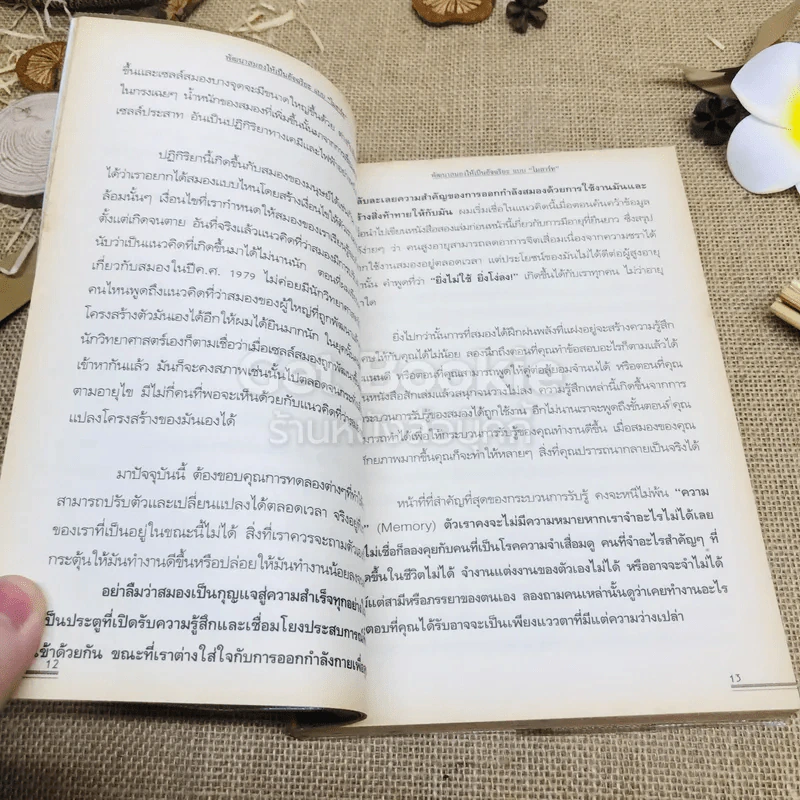 พัฒนาสมองให้เป็นอัจฉริยะ แบบ "โมสาร์ท"
ขึ้นและเซลล์สมองบางจุดจะมีขนาดใหญ่ขึ้นด้วย
ในกรงเฉยๆ น้ำหนักของสมองที่เพิ่มขึ้นนั้นมาจากการ
เซลล์ประสาท อันเป็นปฏิกิริยาทางเคมีและไฟฟ้า
ปฏิกิริยานี้เกิดขึ้นกับสมองของมนุษย์ได้เช่นกัน
ได้ว่าเราอยากได้สมองแบบไหนโดยสร้างเงื่อนไขให้
ล้อมนั้นๆ เงื่อนไขที่เรากำหนดให้สมองของเราเรียนรู้
ตั้งแต่เกิดจนตาย อันที่จริงแล้วแนวคิดที่ว่าสมองมีการ
นับว่าเป็นแนวคิดที่เกิดขึ้นมาได้ไม่นานนัก ตอนที่
เกี่ยวกับสมองในปีค.ศ. 1979 ไม่ค่อยมีนักวิทยาศาสตร์
คนไหนพูดถึงแนวคิดที่ว่าสมองของผู้ใหญ่ที่ถูกพัฒนา
โครงสร้างตัวมันเองได้อีกให้ผมได้ยินมากนัก ในยุคนั้น
นักวิทยาศาสตร์เองก็ตามเชื่อว่าเมื่อเซลล์สมองถูกพัฒนา
เข้าหากันแล้ว มันก็จะคงสภาพเช่นนั้นไปตลอดจน
ตามอายุไข มีไม่กี่คนที่พอจะเห็นด้วยกับแนวคิดที่ว่า
แปลงโครงสร้างของมันเองได้
มาปัจจุบันนี้ ต้องขอบคุณการทดลองต่างๆที่ทำให้
สามารถปรับตัวและเปลี่ยนแปลงได้ตลอดเวลา จริงอยู่
ของเราที่เป็นอยู่ในขณะนี้ไม่ได้ สิ่งที่เราควรจะถามตัวเอง
กระตุ้นให้มันทำงานดีขึ้นหรือปล่อยให้มันทำงานน้อยลง
อย่าลืมว่าสมองเป็นกุญแจสู่ความสำเร็จทุกอย่าง
เป็นประตูที่เปิดรับความรู้สึกและเชื่อมโยงประสบการณ์
เข้าด้วยกัน ขณะที่เราต่างใส่ใจกับการออกกำลังกายเพื่อ
12
พัฒนาสมองให้เป็นอัจฉริยะ แบบ "โมสาร์ท"
ลับละเลยความสำคัญของการออกกำลังสมองด้วยการใช้งานมันและ
ร้างสิ่งท้าทายให้กับมัน ผมเริ่มเชื่อในแนวคิดนี้เมื่อตอนค้นคว้าข้อมูล
อนำไปเขียนหนังสือสองเล่มก่อนหน้านี้เกี่ยวกับการมีอายุที่ยืนยาว ซึ่งสรุป
ง่ายๆ ว่า คนสูงอายุสามารถลดอาการจิตเสื่อมเนื่องจากความชราได้
ใช้งานสมองอยู่ตลอดเวลา แต่ประโยชน์ของมันไม่ได้ดีต่อผู้สูงอายุ
นั้น คำพูดที่ว่า "ยิ่งไม่ใช้ ยิ่งโง่ลง!" เกิดขึ้นได้กับเราทุกคน ไม่ว่าอายุ
ใด
ยิ่งไปกว่านั้นการที่สมองได้ฝึกฝนพลังที่แฝงอยู่จะสร้างความรู้สึก
ให้กับคุณได้ไม่น้อย ลองนึกถึงตอนที่คุณทำข้อสอบอะไรก็ตามแล้วได้
แนนดี หรือตอนที่คุณสามารถพูดให้คู่ต่อสู้ยอมจำนนได้ หรือตอนที่คุณ
หนังสือสักเล่มแล้วสนุกจนวางไม่ลง ความรู้สึกเหล่านี้เกิดขึ้นจากการ
ระบวนการรับรู้ของสมองได้ถูกใช้งาน อีกไม่นานเราจะพูดถึงขั้นตอนที่คุณ
มารถทำได้เพื่อให้กระบวนการรับรู้ของคุณทำงานดีขึ้น เมื่อสมองของคุณ
ักยภาพมากขึ้นคุณก็จะทำให้หลายๆ สิ่งที่คุณปรารถนากลายเป็นจริงได้
หน้าที่ที่สำคัญที่สุดของกระบวนการรับรู้ คงจะหนีไม่พ้น "ความ
" (Memory) ตัวเราคงจะไม่มีความหมายหากเราจำอะไรไม่ได้เลย
ไม่เชื่อก็ลองคุยกับคนที่เป็นโรคความจำเสื่อมดู คนที่จำอะไรสำคัญๆ ที่
ดขึ้นในชีวิตไม่ได้ จำงานแต่งงานของตัวเองไม่ได้ หรืออาจจะจำไม่ได้
แต่สามีหรือภรรยาของตนเอง ลองถามคนเหล่านั้นดูว่าเคยทำงานอะไร
ตอบที่คุณได้รับอาจจะเป็นเพียงแววตาที่มีแต่ความว่างเปล่า
13
Got Bookie
ร้านหนังสือบุ๊คกี้